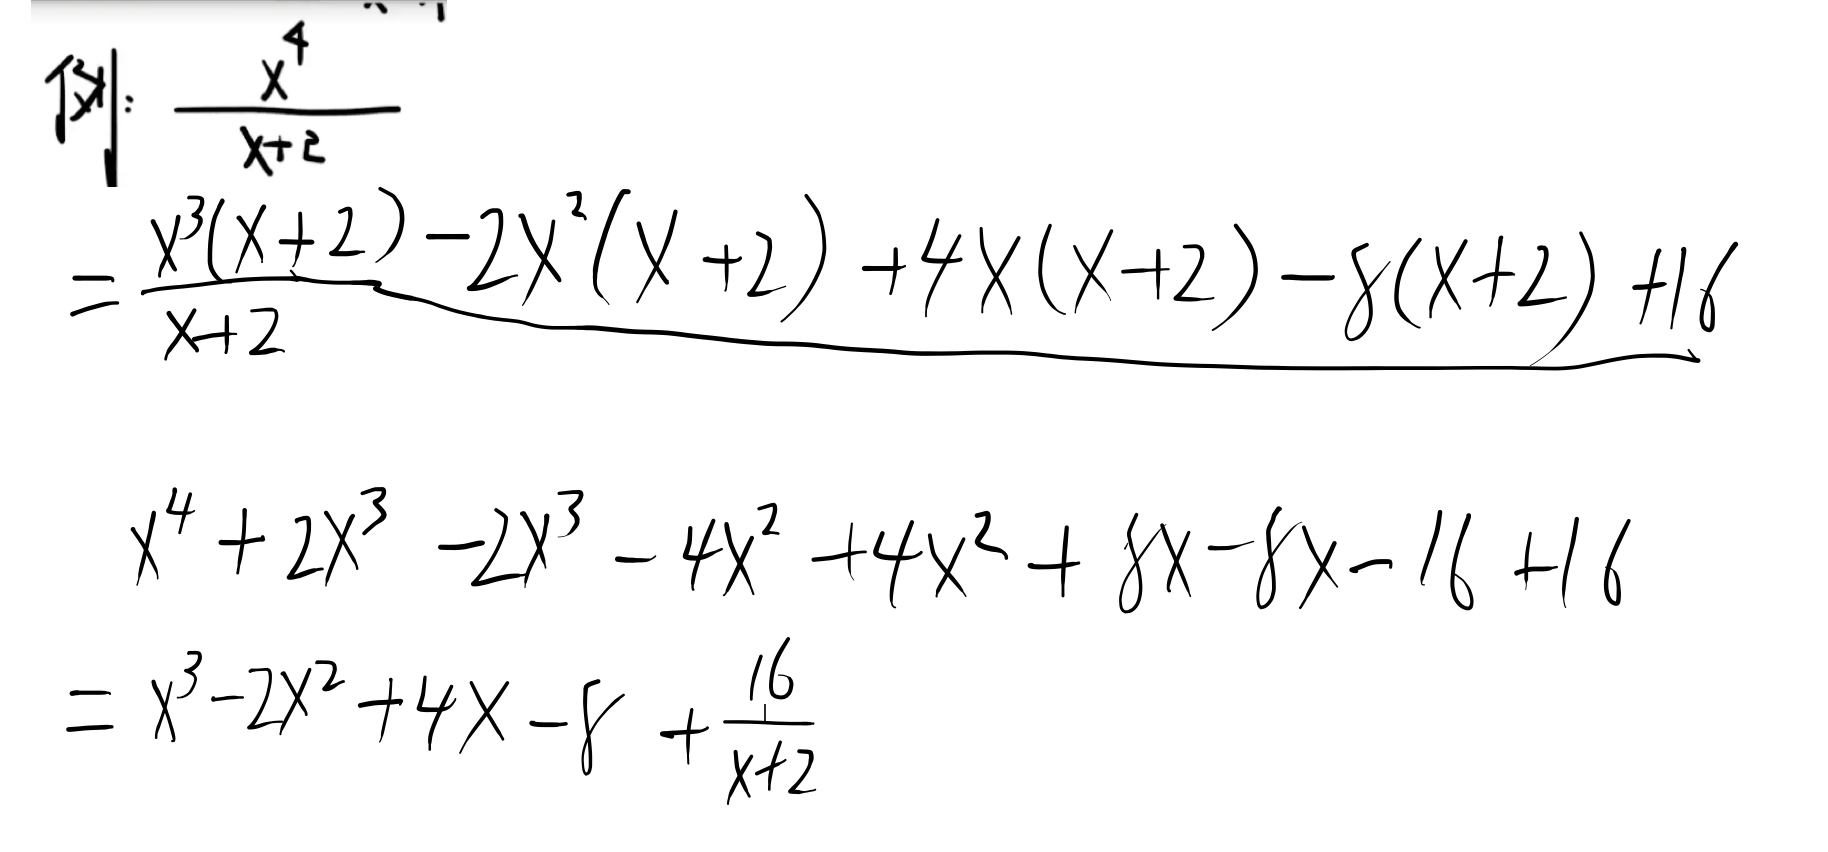 例: x⁴/(x+2)
= (x³(x+2) -2x²(x+2) +4x(x+2) -8(x+2) +16)/(x+2)
x⁴ + 2x³ -2x³ - 4x² +4x² + 8x - 8x - 16 +16
= x³ -2x² +4x -8 + 16/(x+2)